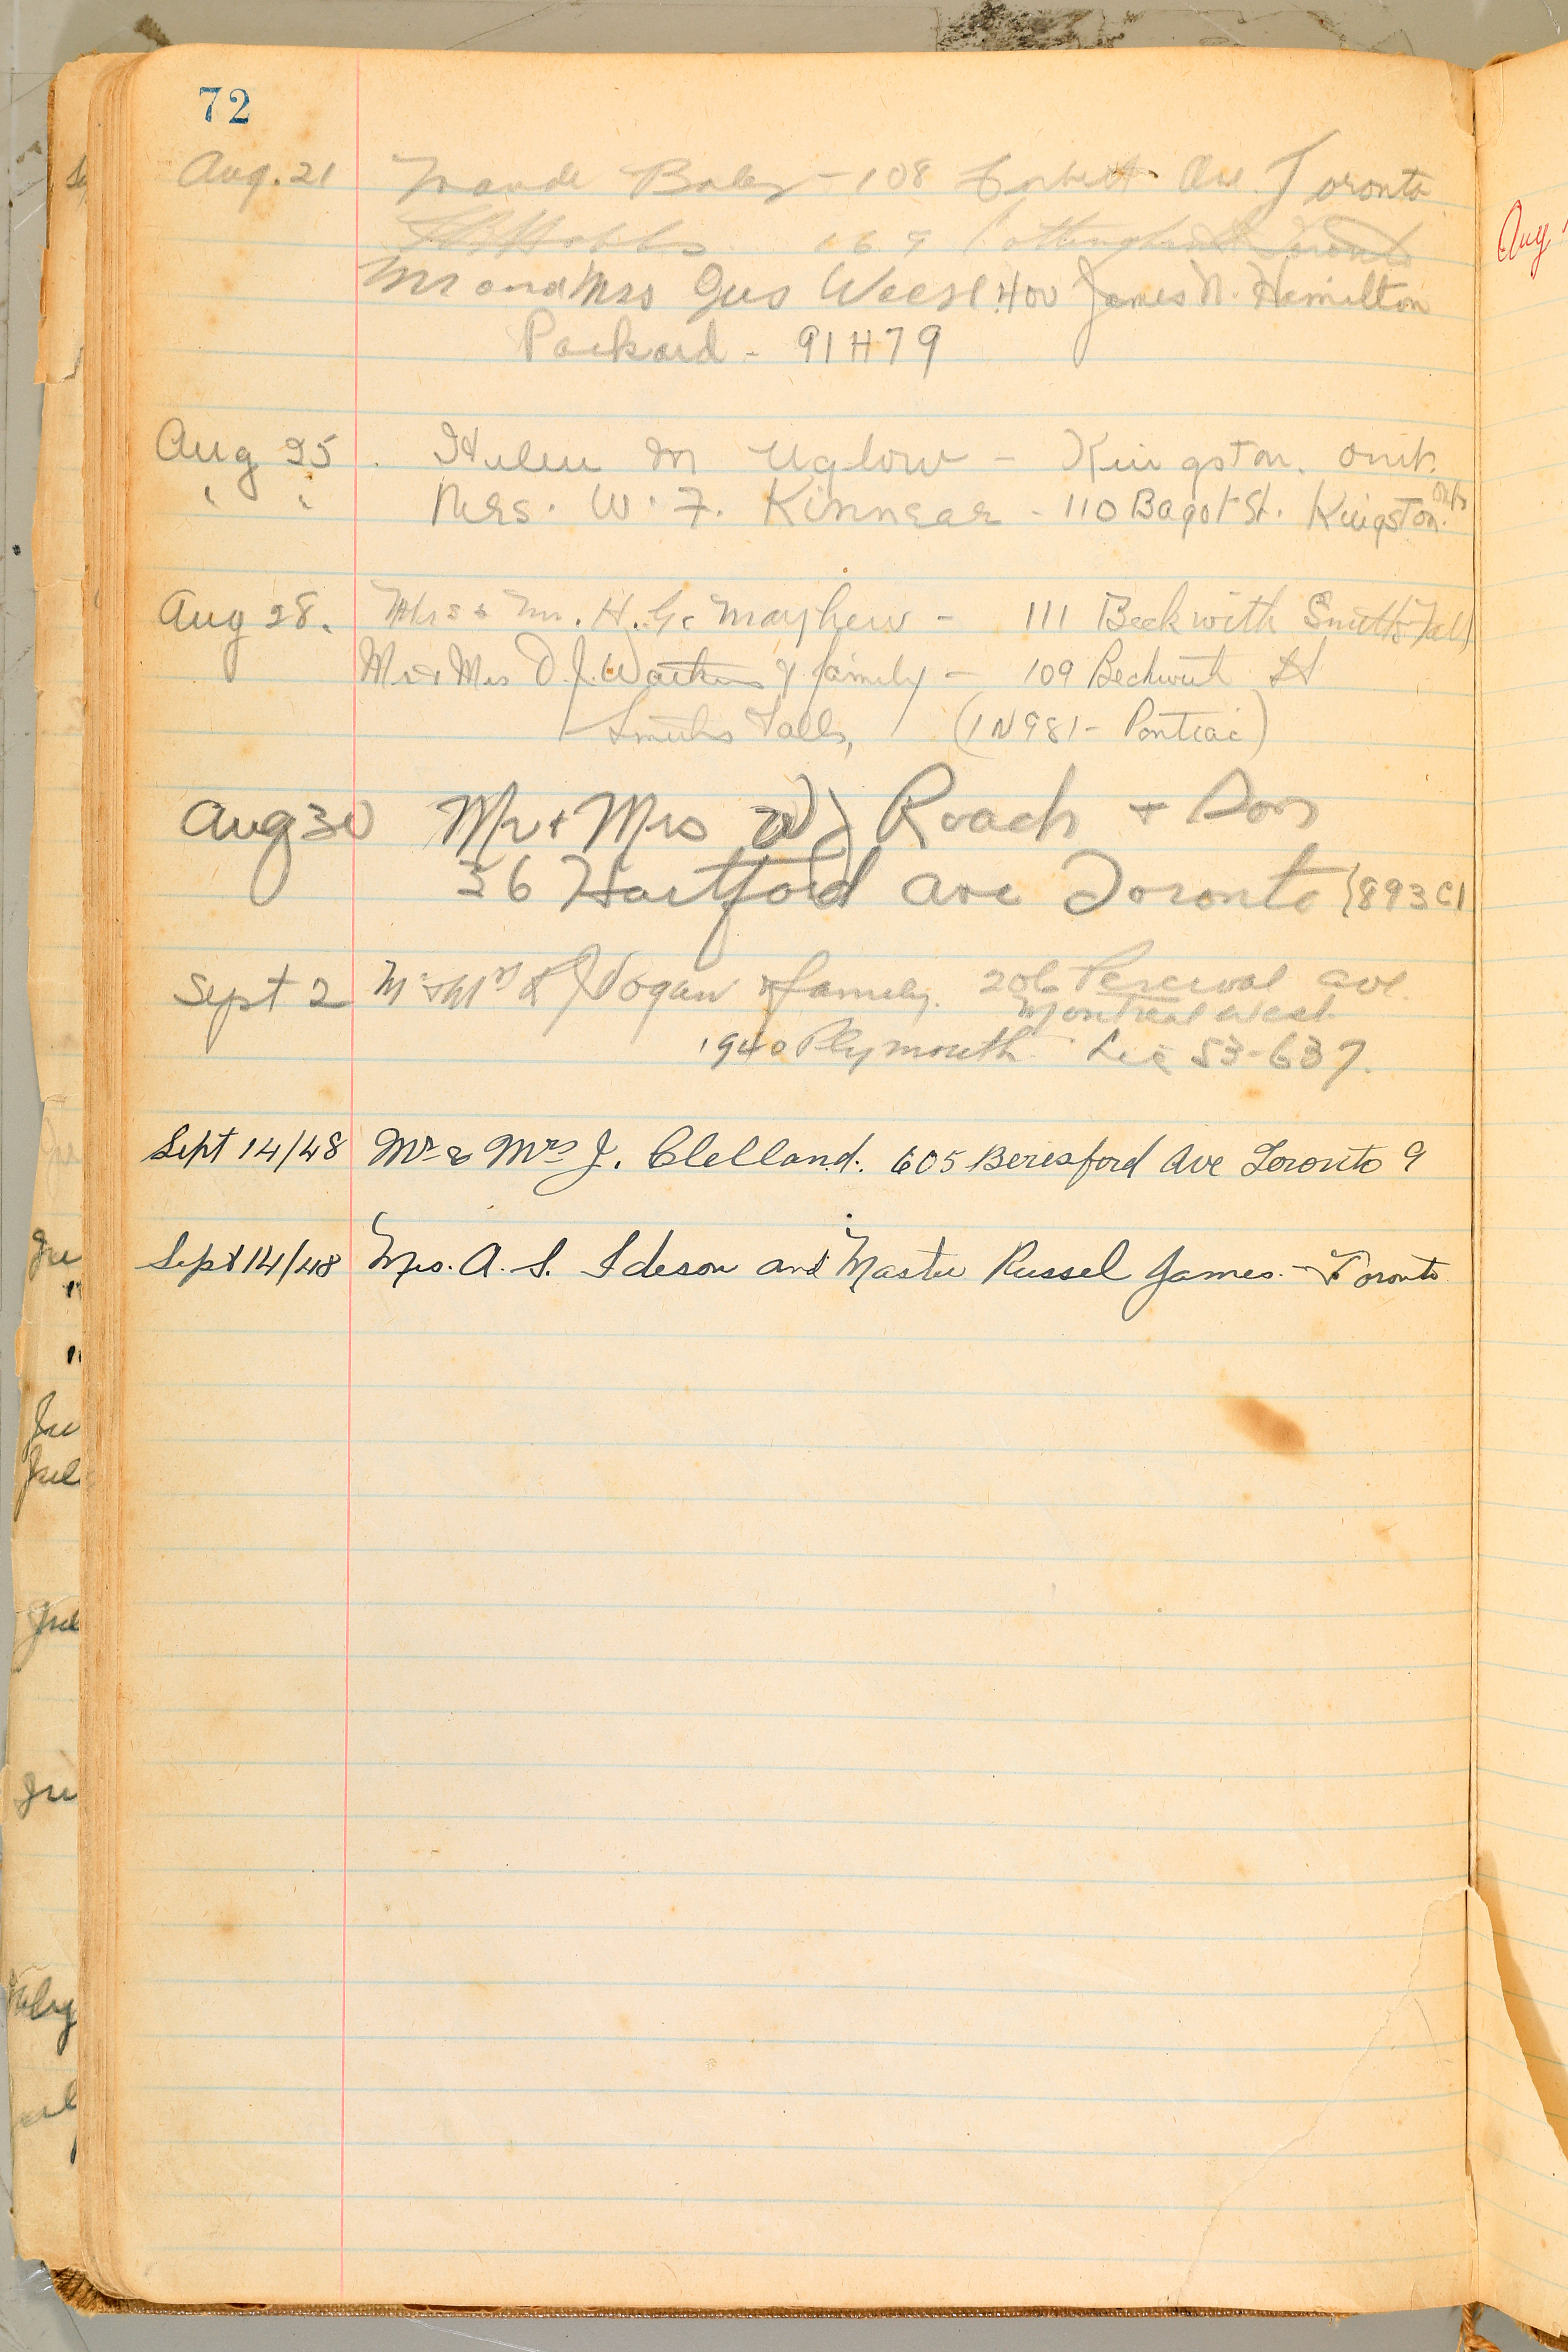 72
Aug. 21 Maude Baley - 108 Corbett Ave. Toronto
169 Cottingham St Toronto
Mr and Mrs Gus Weesl. 400 James N. Hamilton
Packard - 91H79
Aug 25 . Helen M Uglow - Kingston. Ont.
" " Mrs. W. F. Kinnear - 110 Bagot St. Kingston. Ont
Aug 28. Mrs & Mr. H. G. Mayhew - 111 Beckwith Smiths Falls
Mr & Mrs D. J. Watkins & family - 109 Beckwith St
Smiths Falls, (1N981 - Pontiac)
Aug 30 Mr + Mrs W J Roach + Son
36 Hartford Ave Toronto (893C1
Sept 2 Mr & Mrs Logan & family. 206 Percival Ave.
Montreal West
1940 Plymouth Lic 53-637.
Sept 14/48 Mr & Mrs J. Clelland. 605 Beresford Ave Toronto 9
Sept 14/48 Mrs. A. S. Ideson and Master Russel James. - Toronto
Aug